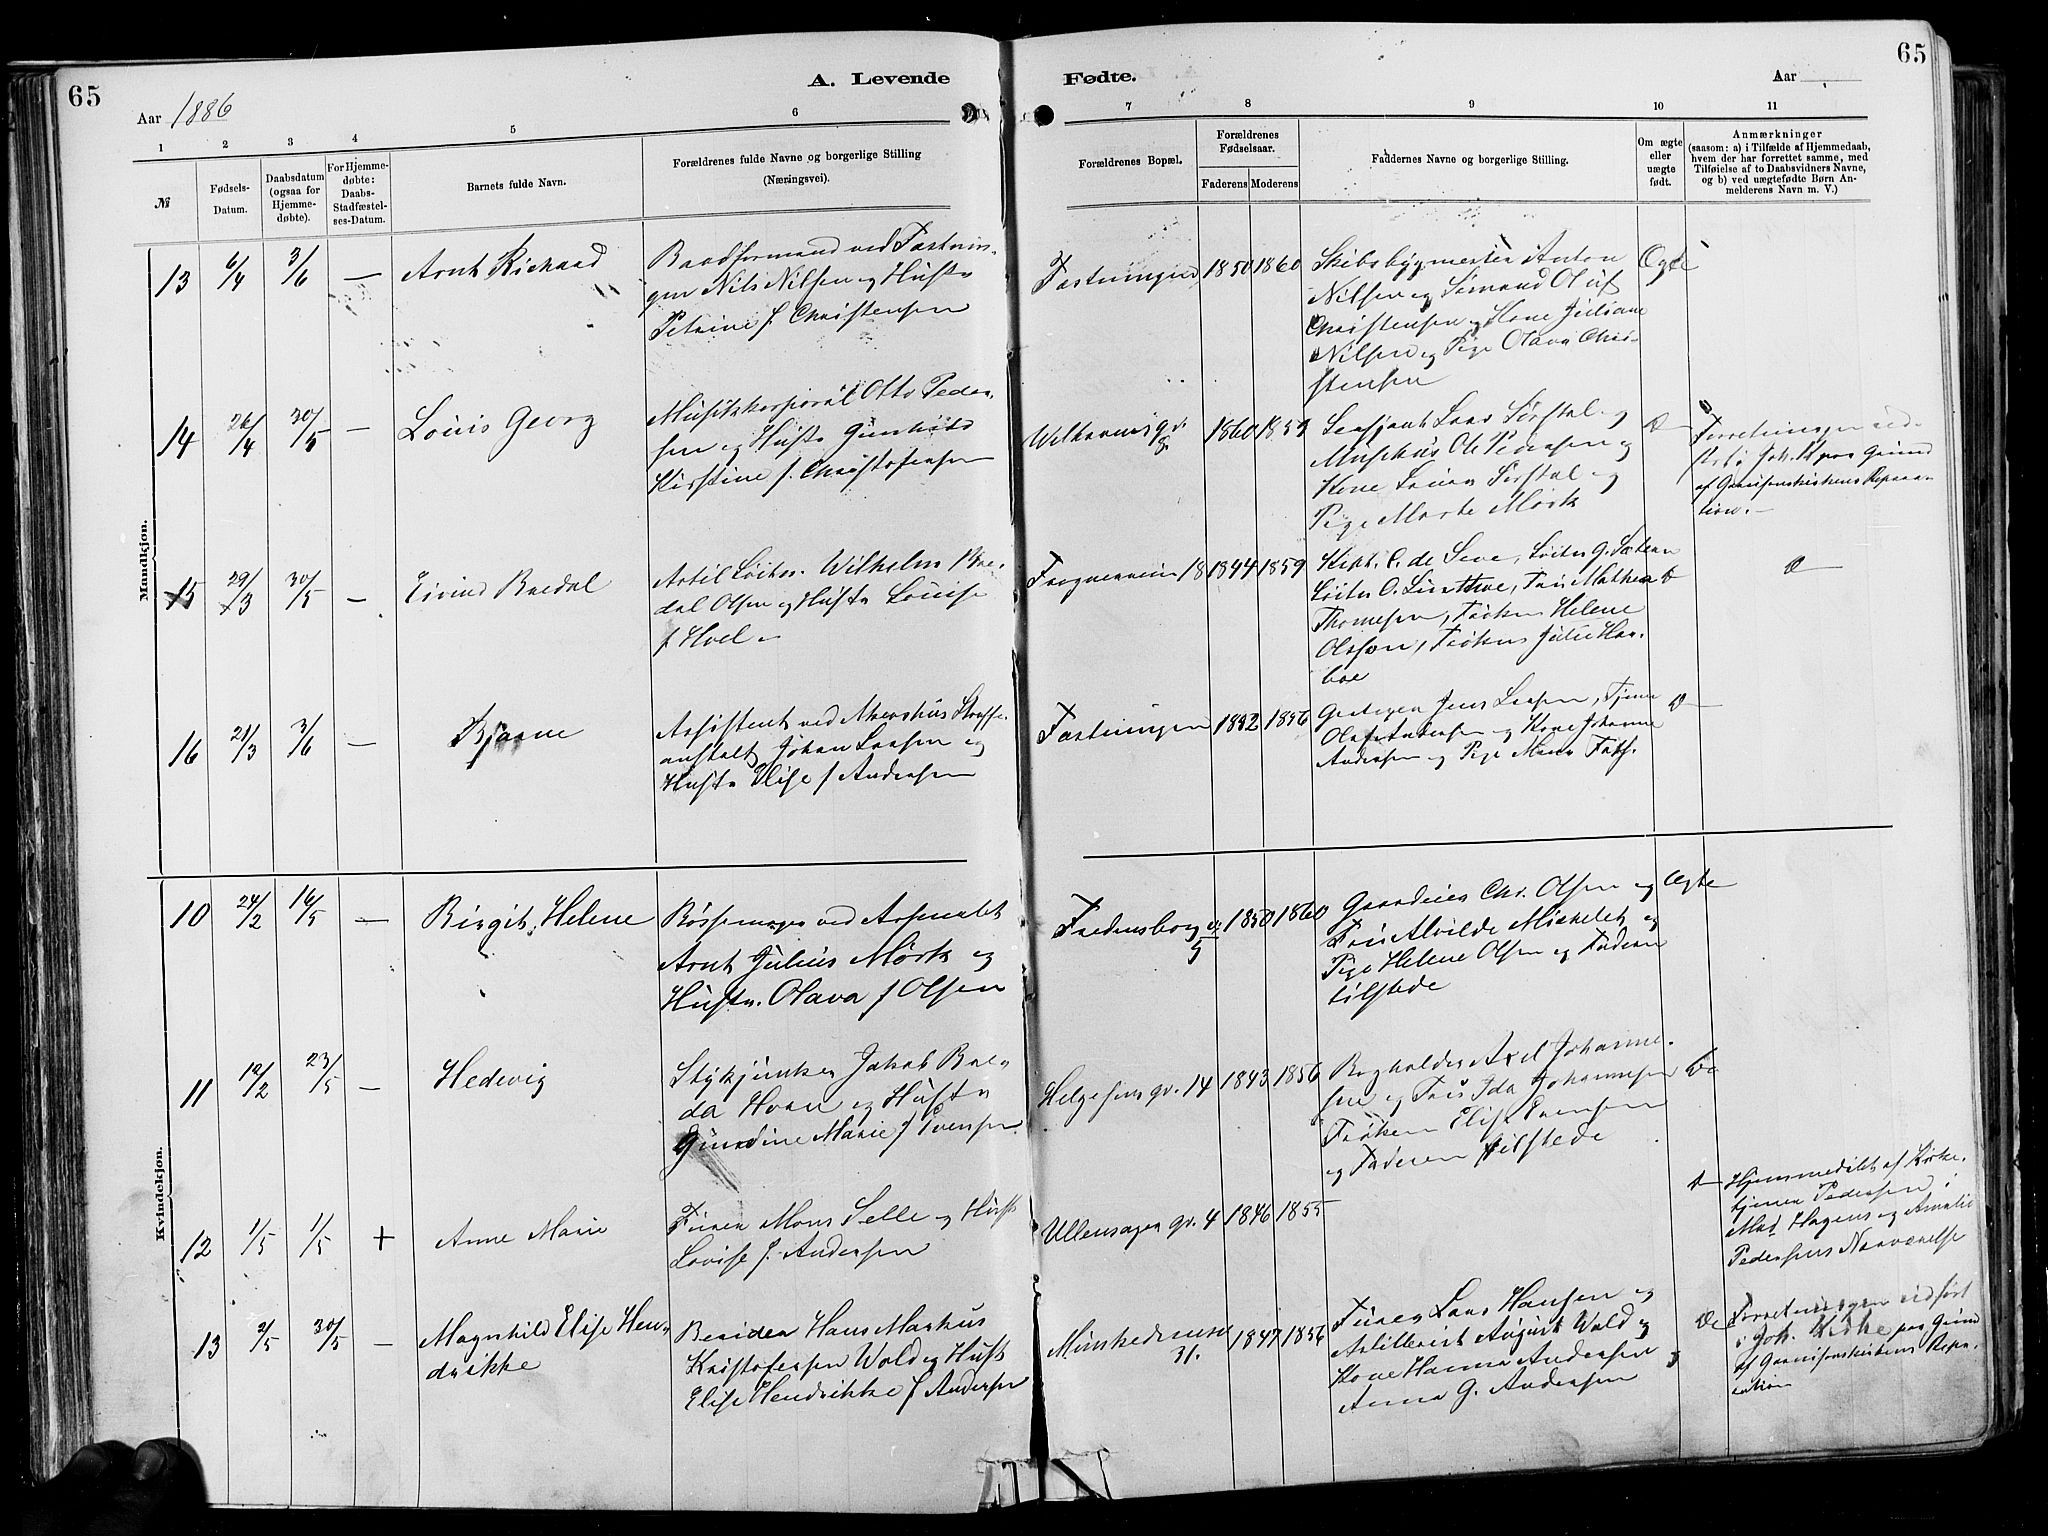 65
65
A. Levende
Fødte.
Aar 1886
Aar
1
2
3
4
5
6
7
8
9
10
11
№
Fødsels-
Datum.
Daabsdatum
(ogsaa for
Hjemme-
døbte).
For Hjemme-
døbte:
Daabs-
Stadfæstel-
ses-Datum.
Barnets fulde Navn.
Forældrenes fulde Navne og borgerlige Stilling
(Næringsvei).
Forældrenes Bopæl.
Forældrenes
Fødselsaar.
Faderens
Moderens
Faddernes Navne og borgerlige Stilling.
Om ægte
eller
uægte
født.
Anmærkninger
(saasom: a) i Tilfælde af Hjemmedaab,
hvem der har forrettet samme, med
Tilføielse af to Daabsvidners Navne,
og b) ved uægtefødte Børn An-
melderens Navn m. V.)
Mandkjøn.
13
6/4
3/6
—
Arnt Richard
Baadformand ved Fæstnin-
gen Nils Nilsen og Hustr
Petrine f. Christensen
Fæstningen
1850
1860
Skibsbygmester Anton
Nilsen og Sømand Oluf
Christensen og Kone Juliane
Nilsen og Pige Olava Chri-
stensen
Ægte
14
26/4
30/5
—
Louis Georg
Musikkorporal Otto Peder-
sen og Hustr Gunhild
Kirstine f. Christofersen
Welhavensgd.
8
1860
1859
Sersjant Lars Sørstal og
Musikus Ole Pedersen og
Kone Louise Sørstal og
Pige Marte Mørk
Forretningen ud-
ført i Joh. K paa Grund
af Garnisonskirkens Repara-
tion.
15
29/3
30/5
—
Eivind Bredal
Artil Løitn. Wilhelm Bre-
dal Olsen og Hustr Louise
f Hoel
Frognerveien 18
1844
1859
Kapt. C. de Seve, Løitn G. Sætern
Løitn O. Linstow, Fru Mathea
Thomesen, Frøken Helene
Olssøn, Frøken Julie Har-
boe
16
21/3
3/6
—
Bjarne
Assistent ved Akershus Straffe-
anstalt Johan Larsen og
Hustr Elise f Andersen
Fæstningen
1852
1856
Jens Larsen, Tjener
Olaf Andersen og Kone Johanne
Andersen og Pige
Kvindekjøn.
10
24/2
16/5
—
Birgit Helene
Bøssemager ved Arsenalet
Arnt Julius Mørk og
Hustr. Olava f Olsen
Fredensborg v
5
1850
1860
Chr. Olsen og
Fru Alvilde Michelet og
Pige Helene Olsen og Faderen
tilstede
Ægte
11
12/2
23/5
—
Hedevig
Stykjunker Jakob Bre-
da Horn og Hustr
Gurdine Marie f Svensen
Helgesensgd. 14
1843
1856
Bogholder Axel Johanne-
sen og Fru Ida Johannesen
Frøken Elise Svensen
og Faderen tilstede
Do
12
1/5
1/5
+
Anne Marie
Furer Mons Selle og Hust
Lovise f. Andersen
Ullensager gd. 4
1846
1855
Hjemmedøbt af Kirke-
tjener Pedersen i
Mad Hagens og Amalie
Pedersens Nærværelse
13
2/5
30/5
—
Magnhild Elise Hen-
drikke
Berider Hans Markus
Kristofersen Wold og Hust
Elise Hendrikke f Andersen
Munkedamsv
31.
1847
1856
Furer Lars Hansen og
Artillerist August Wold og
Kone Hanna Andersen
Anna G. Andersen
Do
Forretningen udført
i Joh. Kirke paa Grund
af Garnisonskirkens Repa-
ration